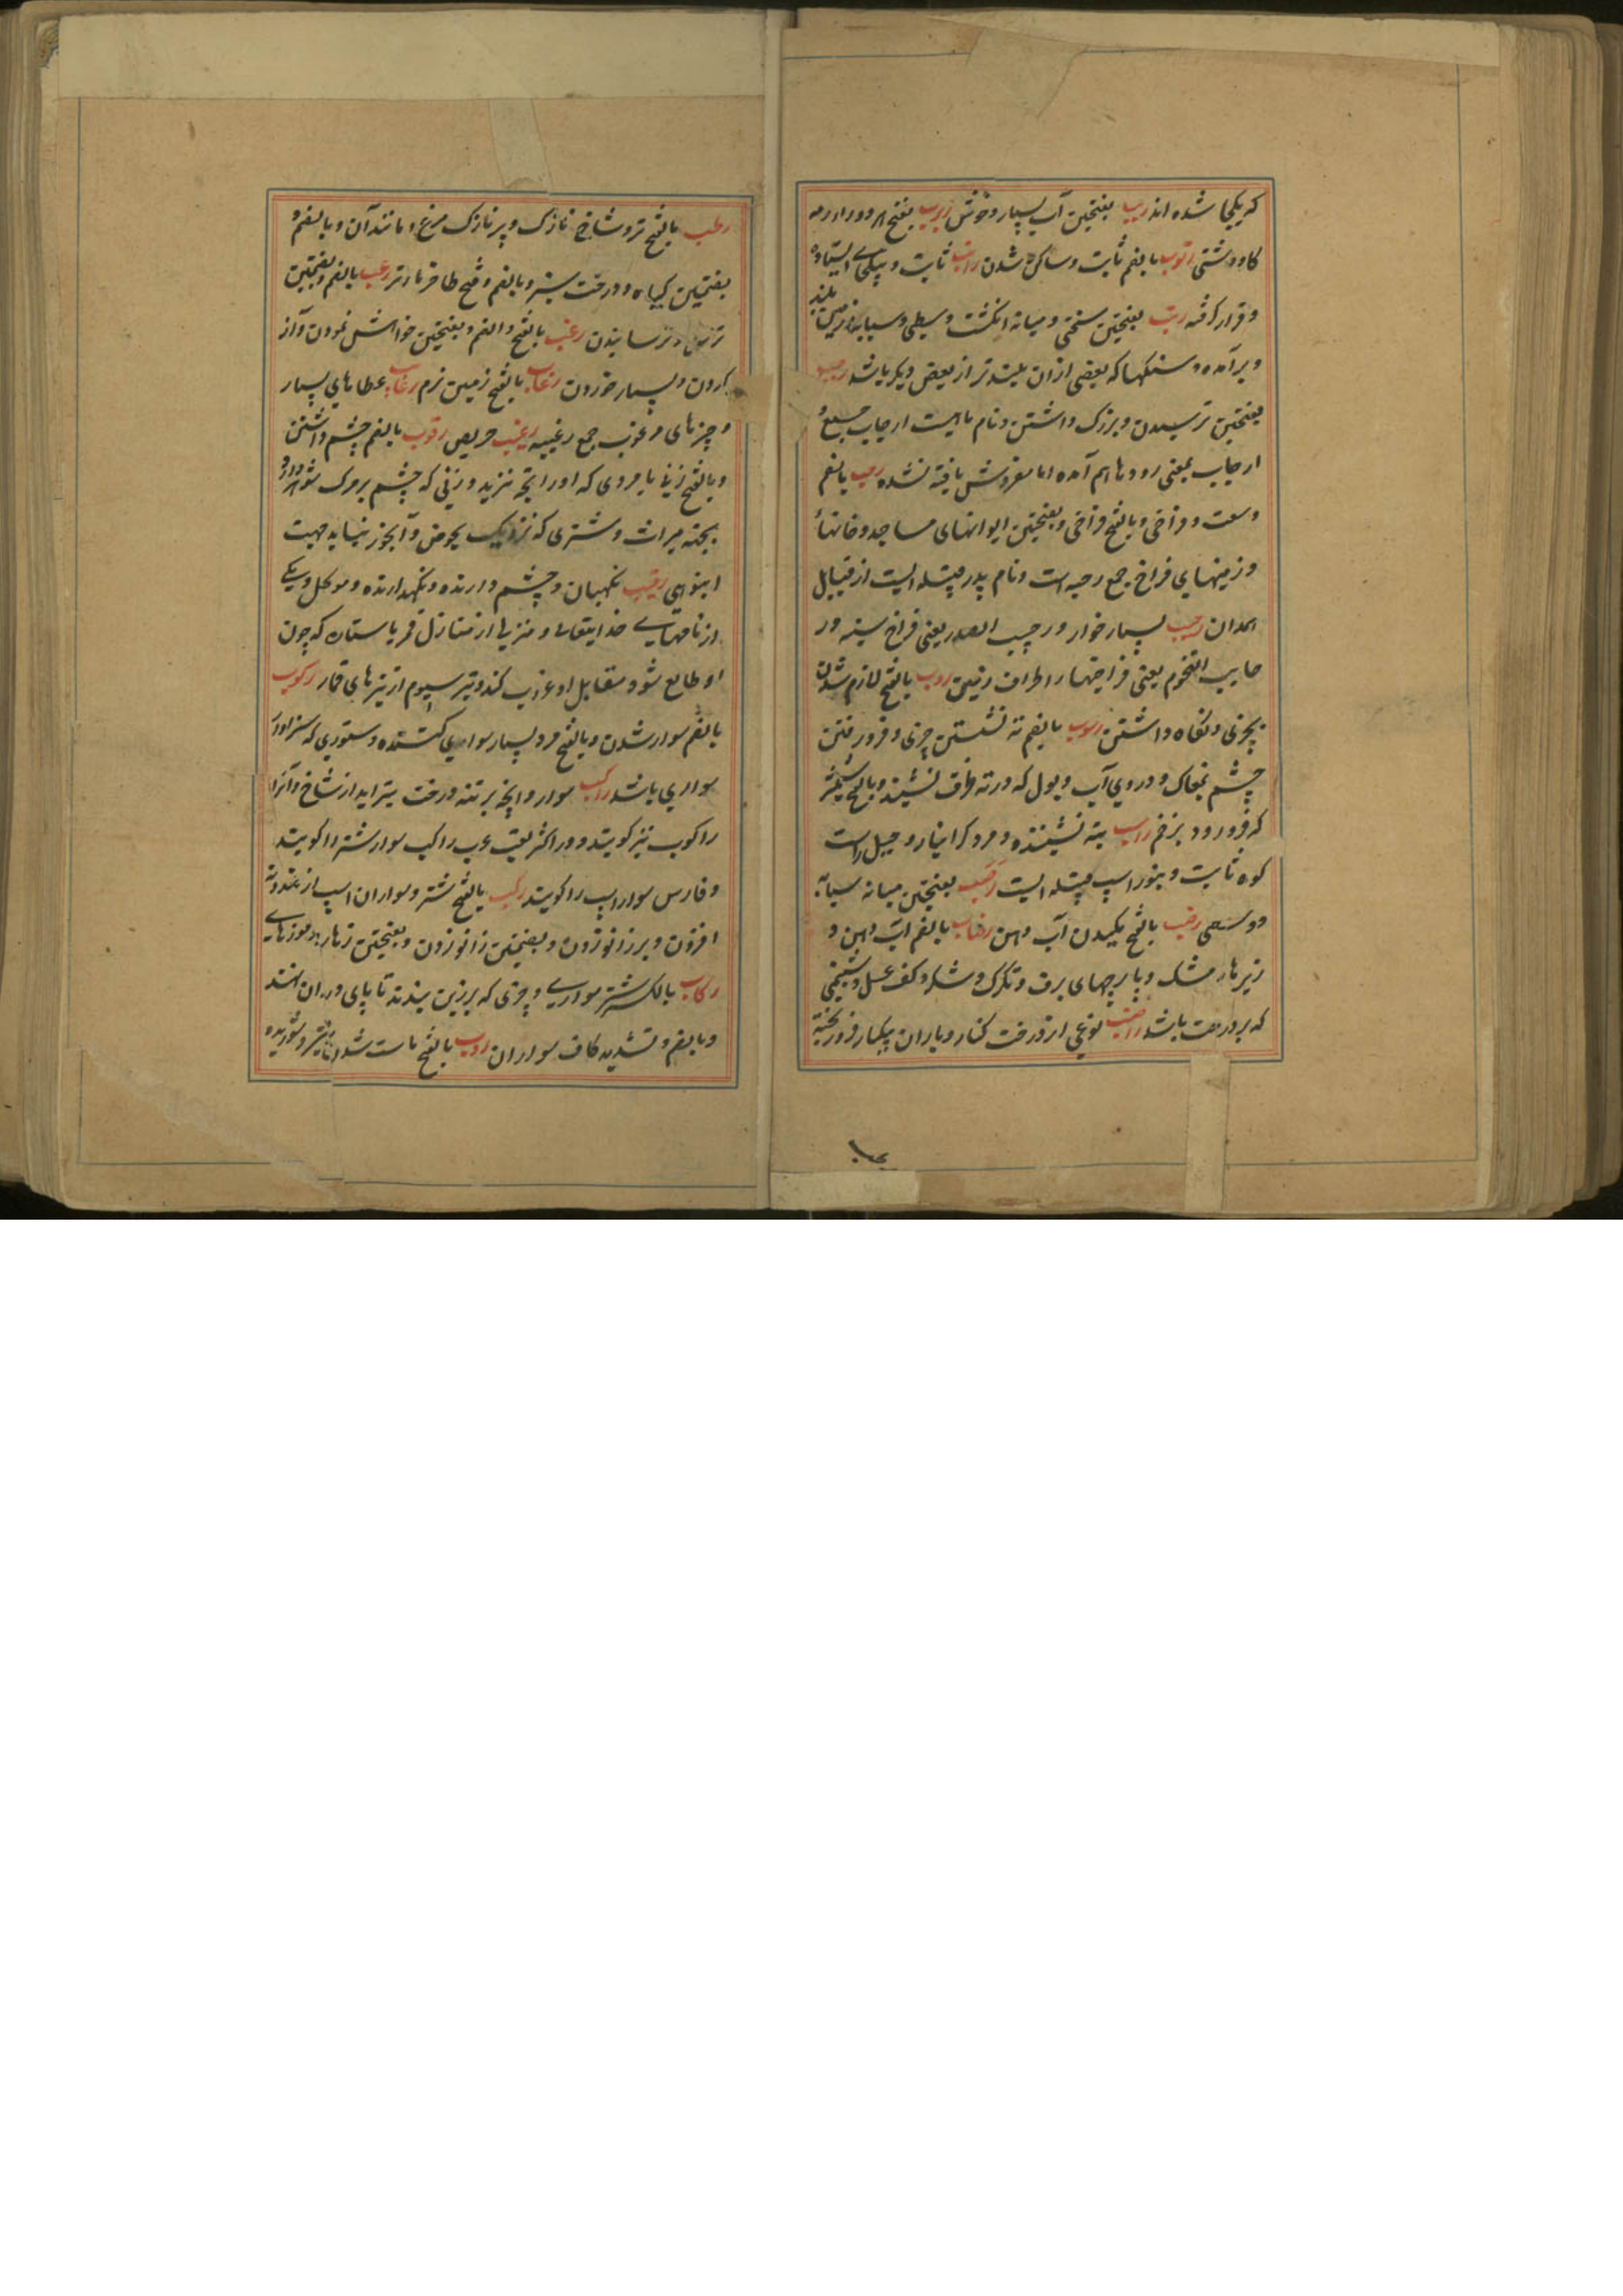 که یکجا شده اند ربب بفتحتین آب بسیار و خوش ربرب بفتح هر دو را رمه
کاو دشتی رتوب بالضم ثابت و ساکن شدن راتب ثابت و بیکجای ایستاده
و قرار گرفته رتب بفتحتین سختی و میانه انگشت وسطی و سبابه و زمین بلند
و برآمده و سنکهاکه بعضی ازان بلندتر از بعض دیکر باشد رجب
بفتحتین ترسیدن و بزرک داشتن و نام ماهیست ارجاب جمع و
ارجاب بمعنی رودها هم آمده اما مفردش یافته نشده رحب بالضم
وسعت و فراخی و بالفتح فراخی و بفتحتین ایوانهای مساجد و خانها
و زمینهای فراخ جمع رحبه است و نام پدر قبیله ایست از قبایل
همدان رحیب بسیار خوار و رحیب الصدر یعنی فراخ سینه و ر
حایب التخوم یعنی فراخیهاء اطراف زمین ردب بالفتح لازم شدن
بچیزی و نکاه داشتن رسوب بالضم ته نشستن چیزی و فرو رفتن
چشم بمغاک و دردی آب و بول که در ته ظرف نشیند و بالفتح شمشیر
که فرو رود بزخم راسب بته نشیننده و مرد کرانبار و جبل راست
کوه ثابت و بنو راسب قبیله ایست رصب بفتحتین میانه سبابه
و وسطی رضب بالفتح مکیدن آب دهن رضاب بالضم آب دهن و
ریزهاء مشک و پارچهای برف و تکرک و شکر و کف عسل و شبنمی
که بر درخت باشد راضب نوعی از درخت کنار و باران بیکبار فرو ریخته
رطب بالفتح تر و شاخ نازک و پر نازک مرغ و مانند آن و بالضم و
بضمتین کیاه و درخت سبز و بالضم و فتح طا خرمای تر رعب بالضم و بضمتین
ترس و ترسانیدن رغب بالفتح و الضم و بفتحتین خواهش نمودن و آز
کردن و بسیار خوردن رغاب بالفتح زمین نرم رغایب عطاهای بسیار
و چیزهای مرغوب جمع رغیبه رغیب حریص رقوب بالضم چشم داشتن
و بالفتح زنی یا مردی که او را بچه نزید و زنی که چشم بمرک شوهر دارد
بجهت میراث و شتری که نزدیک بحوض و آبخور نیاید بجهت
انبوهی رقیب نکهبان و چشم دارنده و نکهدارنده و موکل و یکی
از نامهای خدایتعالی و منزلی از منازل قمر یا ستاره که چون
او طالع شود مقابل او غروب کند و تیر سیوم از تیرهای قمار رکوب
بالضم سوار شدن و بالفتح مرد بسیار سواری کننده و ستوری که سزاوار
سواری باشد راکب سوار و آنچه بر تنه درخت برآید از شاخ و آنرا
راکوب نیز کویند و در اکثر لغت عرب راکب سوار شتر را کویند
و فارس سوار اسپ را کویند رکب بالفتح شتر و سواران اسپ از ده
افزون و بر زانو زدن و بضمتین زانو زدن و بفتحتین زهار
رکاب بالکسر شتر سواری و چیزی که بر زین بندند تا پای در آن نهند
و بالضم و تشدید کاف سواران روب بالفتح ماست شدن